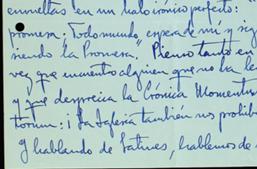 envueltas en un halo irónico perfecto:
promesa: Todo mundo espera de mí y sig
siendo la Promesa. Pienso tanto en
vez que encuentro alguien que no ha le
y que desprecia la Crónica Momentus
torum: ¡La Iglesia también nos prohib
Y hablando de Latines, hablemos de